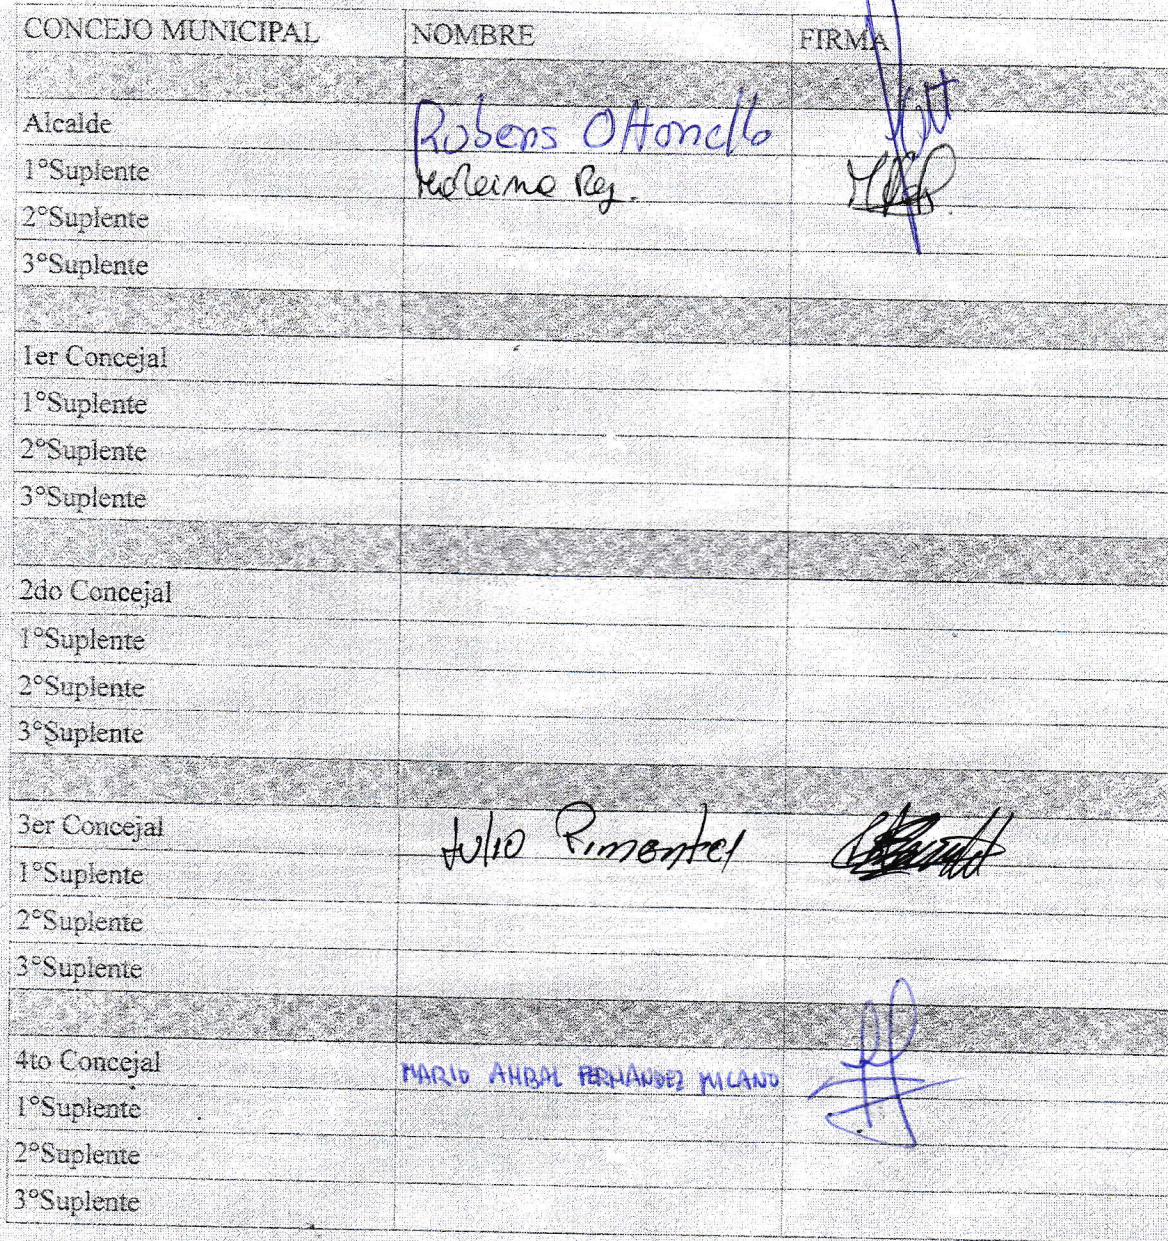 CONCEJO MUNICIPAL NOMBRE FIRMA
Alcalde Rubens Ottonello
1°Suplente
2°Suplente
3°Suplente
1er Concejal
1°Suplente
2°Suplente
3°Suplente
2do Concejal
1°Suplente
2°Suplente
3°Suplente
3er Concejal Julio Pimentel
1°Suplente
2°Suplente
3°Suplente
4to Concejal MARIO ANBAL FERNANDEZ
1°Suplente
2°Suplente
3°Suplente